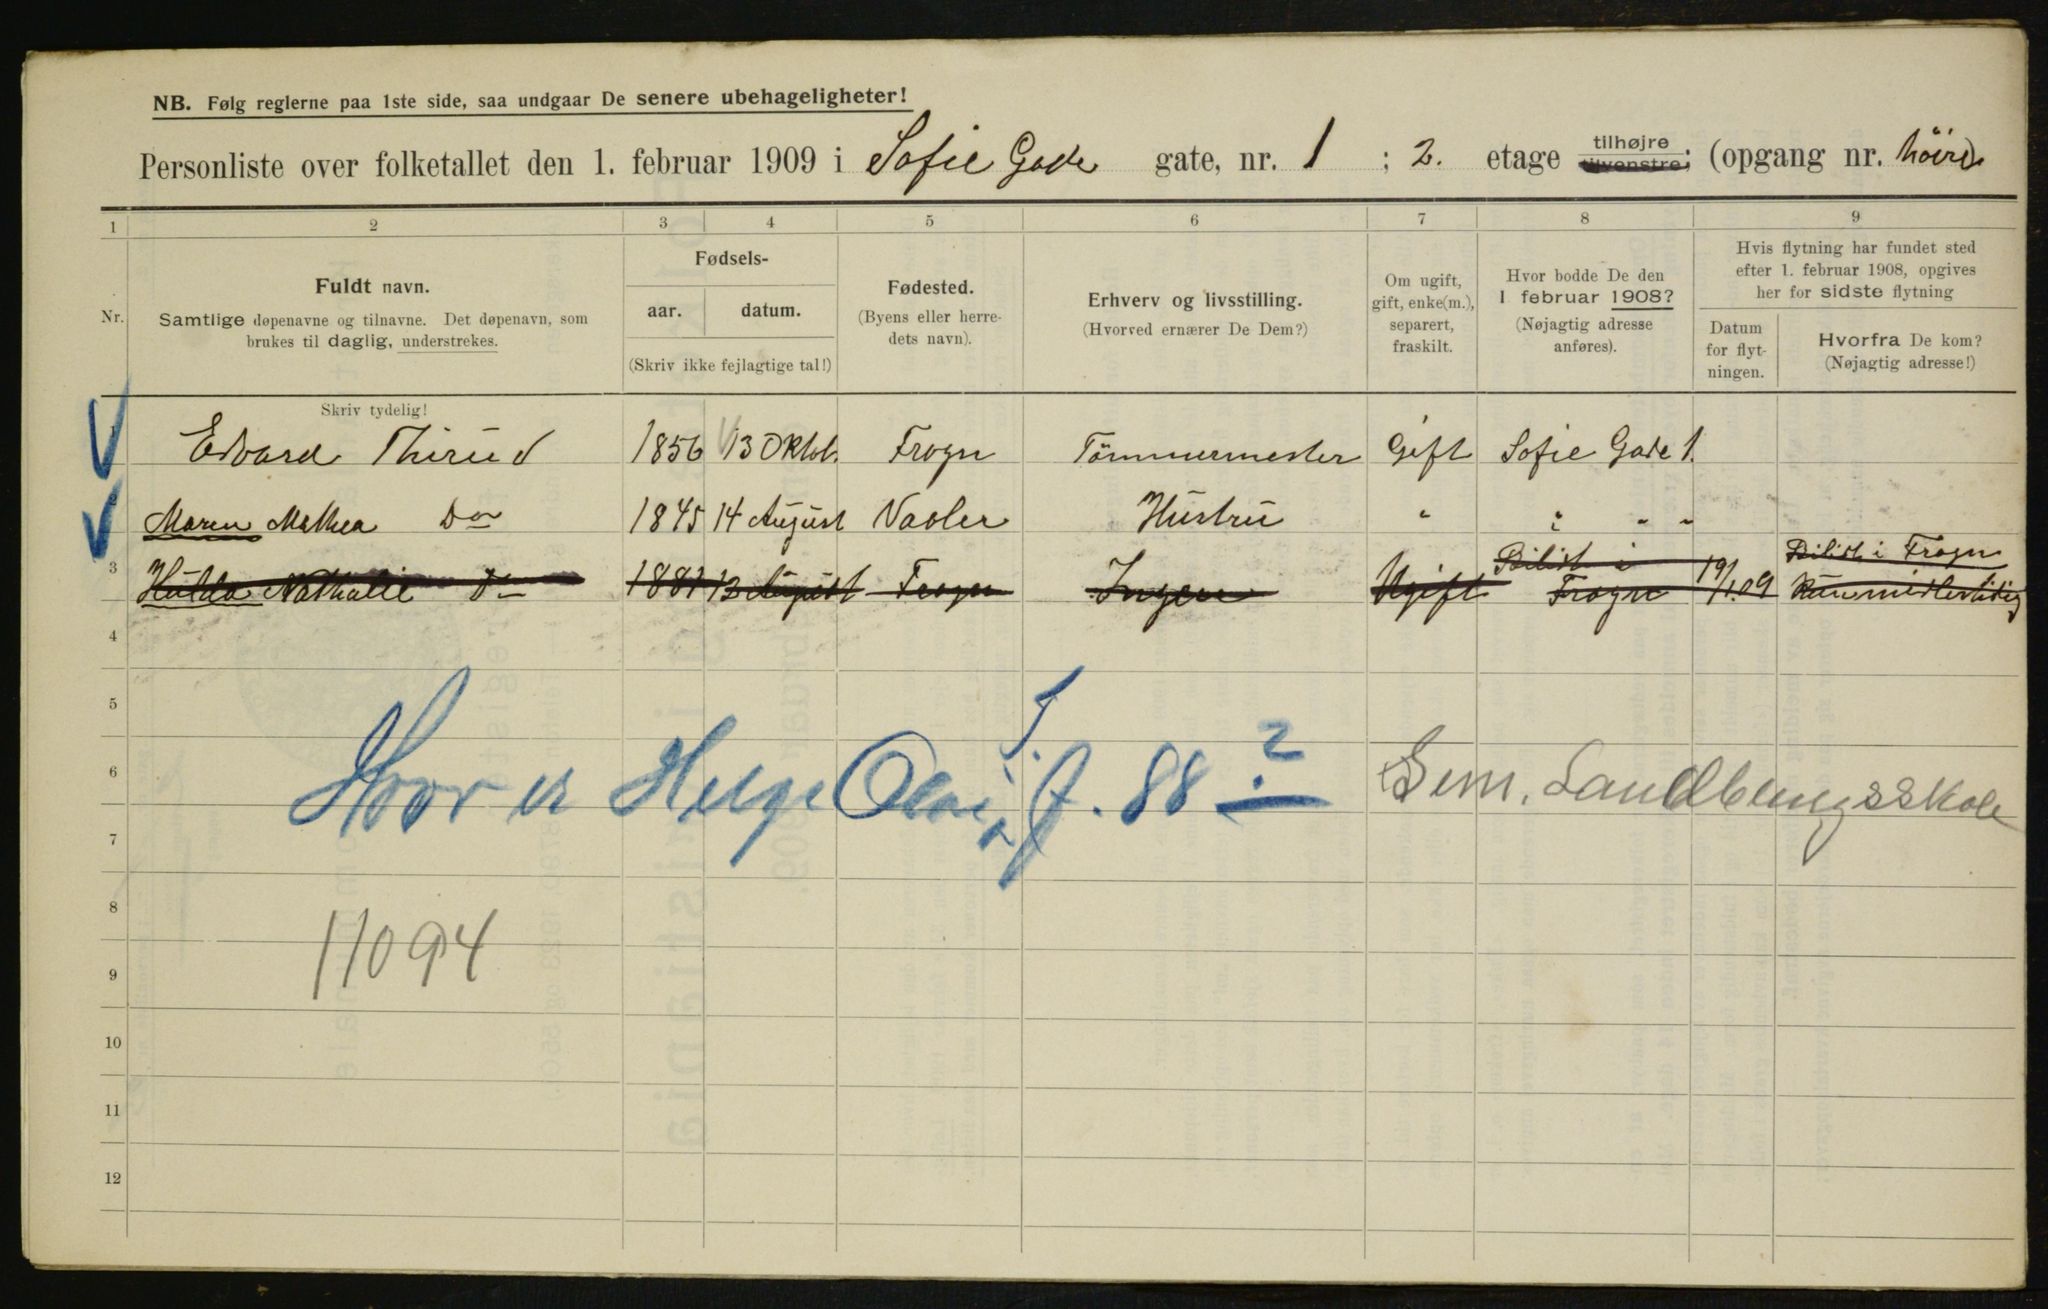 NB. Følg reglerne paa 1ste side, saa undgaar De senere ubehageligheter!
Personliste over folketallet den 1. februar 1909 i Sofie Gade gate, nr. 1 ; 2. etage tilhøjre tilvenstre; (opgang nr. höire)
1 2 3 4 5 6 7 8 9
Nr.
Fuldt navn.
Samtlige døpenavne og tilnavne. Det døpenavn, som
brukes til daglig, understrekes.
Skriv tydelig!
Fødsels-
aar. datum.
(Skriv ikke fejlagtige tal!)
Fødested.
(Byens eller herre-
dets navn).
Erhverv og livsstilling.
(Hvorved ernærer De Dem?)
Om ugift,
gift, enke(m.),
separert,
fraskilt.
Hvor bodde De den
1 februar 1908?
(Nøjagtig adresse
anføres).
Hvis flytning har fundet sted
efter 1. februar 1908, opgives
her for sidste flytning
Datum
for flyt-
ningen.
Hvorfra De kom?
(Nøjagtig adresse!)
1 Edvard Thirud 1856 13 Oktob. Frogn Tömmermester Gift Sofie Gade 1.
2 Maren Mathea Do 1845 14 August Hustru " " " "
3 Hulda Nathalie Do 1881 12 August Frogn Ingen Ugift i Frogn 19/1.09 i Frogn
4
5
6 Hvor er Helge f. 88? Sem. Landbrugsskole
7
8
11094
9
10
11
12